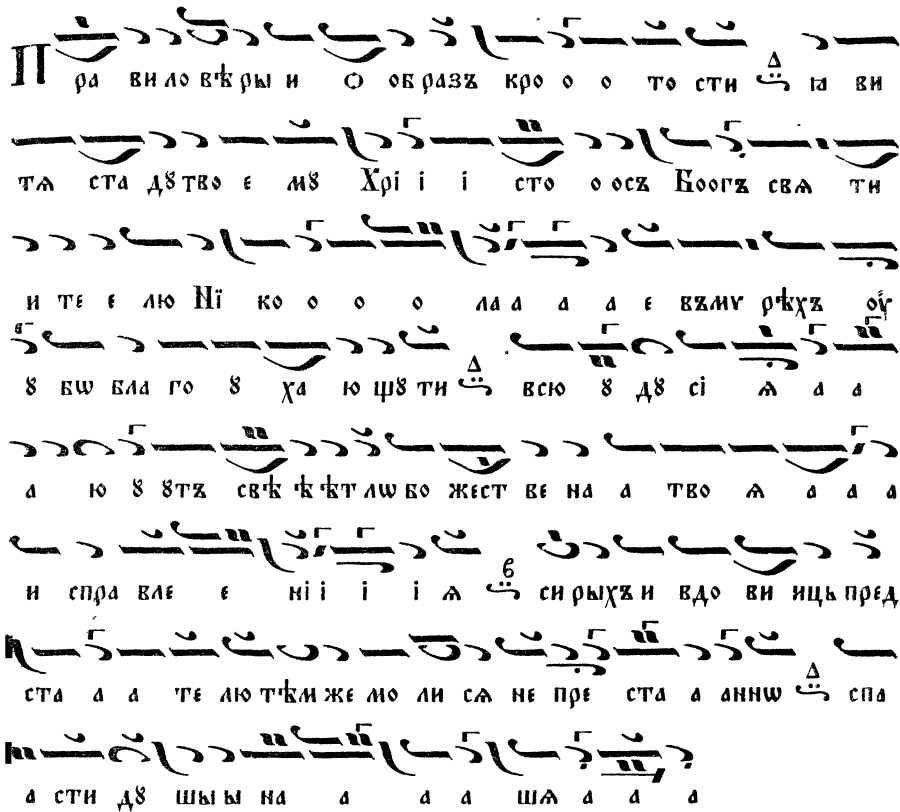 Пра ви ло вѣ ры и ѻ об разъ кро о о то сти Д ꙗ ви
тѧ ста дꙋ тво е мꙋ Хрі і і сто о осъ Боогъ свѧ ти
и те е лю Ні ко о о о лаа а а а е въмѵ рѣхъ оу
ꙋ бѡ бла го ꙋ ха ю щꙋ ти Д всю ꙋ дꙋ сі ѧ а а
а ю ꙋ ꙋтъ свѣ ѣ ѣт лѡ бо жест ве на а тво ѧ а а а
и спра вле е ні і і і ѧ в си рыхъ и вдо ви иць пред
ста а а те лю тѣм же мо ли сѧ не пре ста а аннѡ Д спа
а сти дꙋ шы ы на а а а шѧ а а а